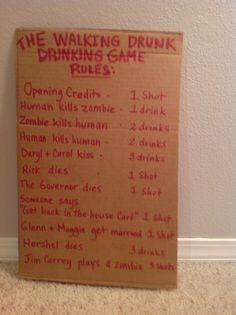 THE WALKING DRUNK
DRINKING GAME
RULES:
Opening Credits - 1 Shot
Human kills zombie - 1 drink
Zombie kills human - 2 drinks
Human kills human - 2 drinks
Daryl + Carol kiss - 3 drinks
Rick dies 1 shot
The Governor dies 1 Shot
Someone says
"Get back in the house Carl" 1 Shot
Glenn + Maggie get married 1 shot
Hershel dies 3 drinks
Jim Carrey plays a Zombie 3 Shots